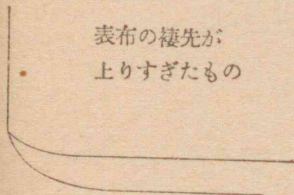 表布の褄先が
上りすぎたもの